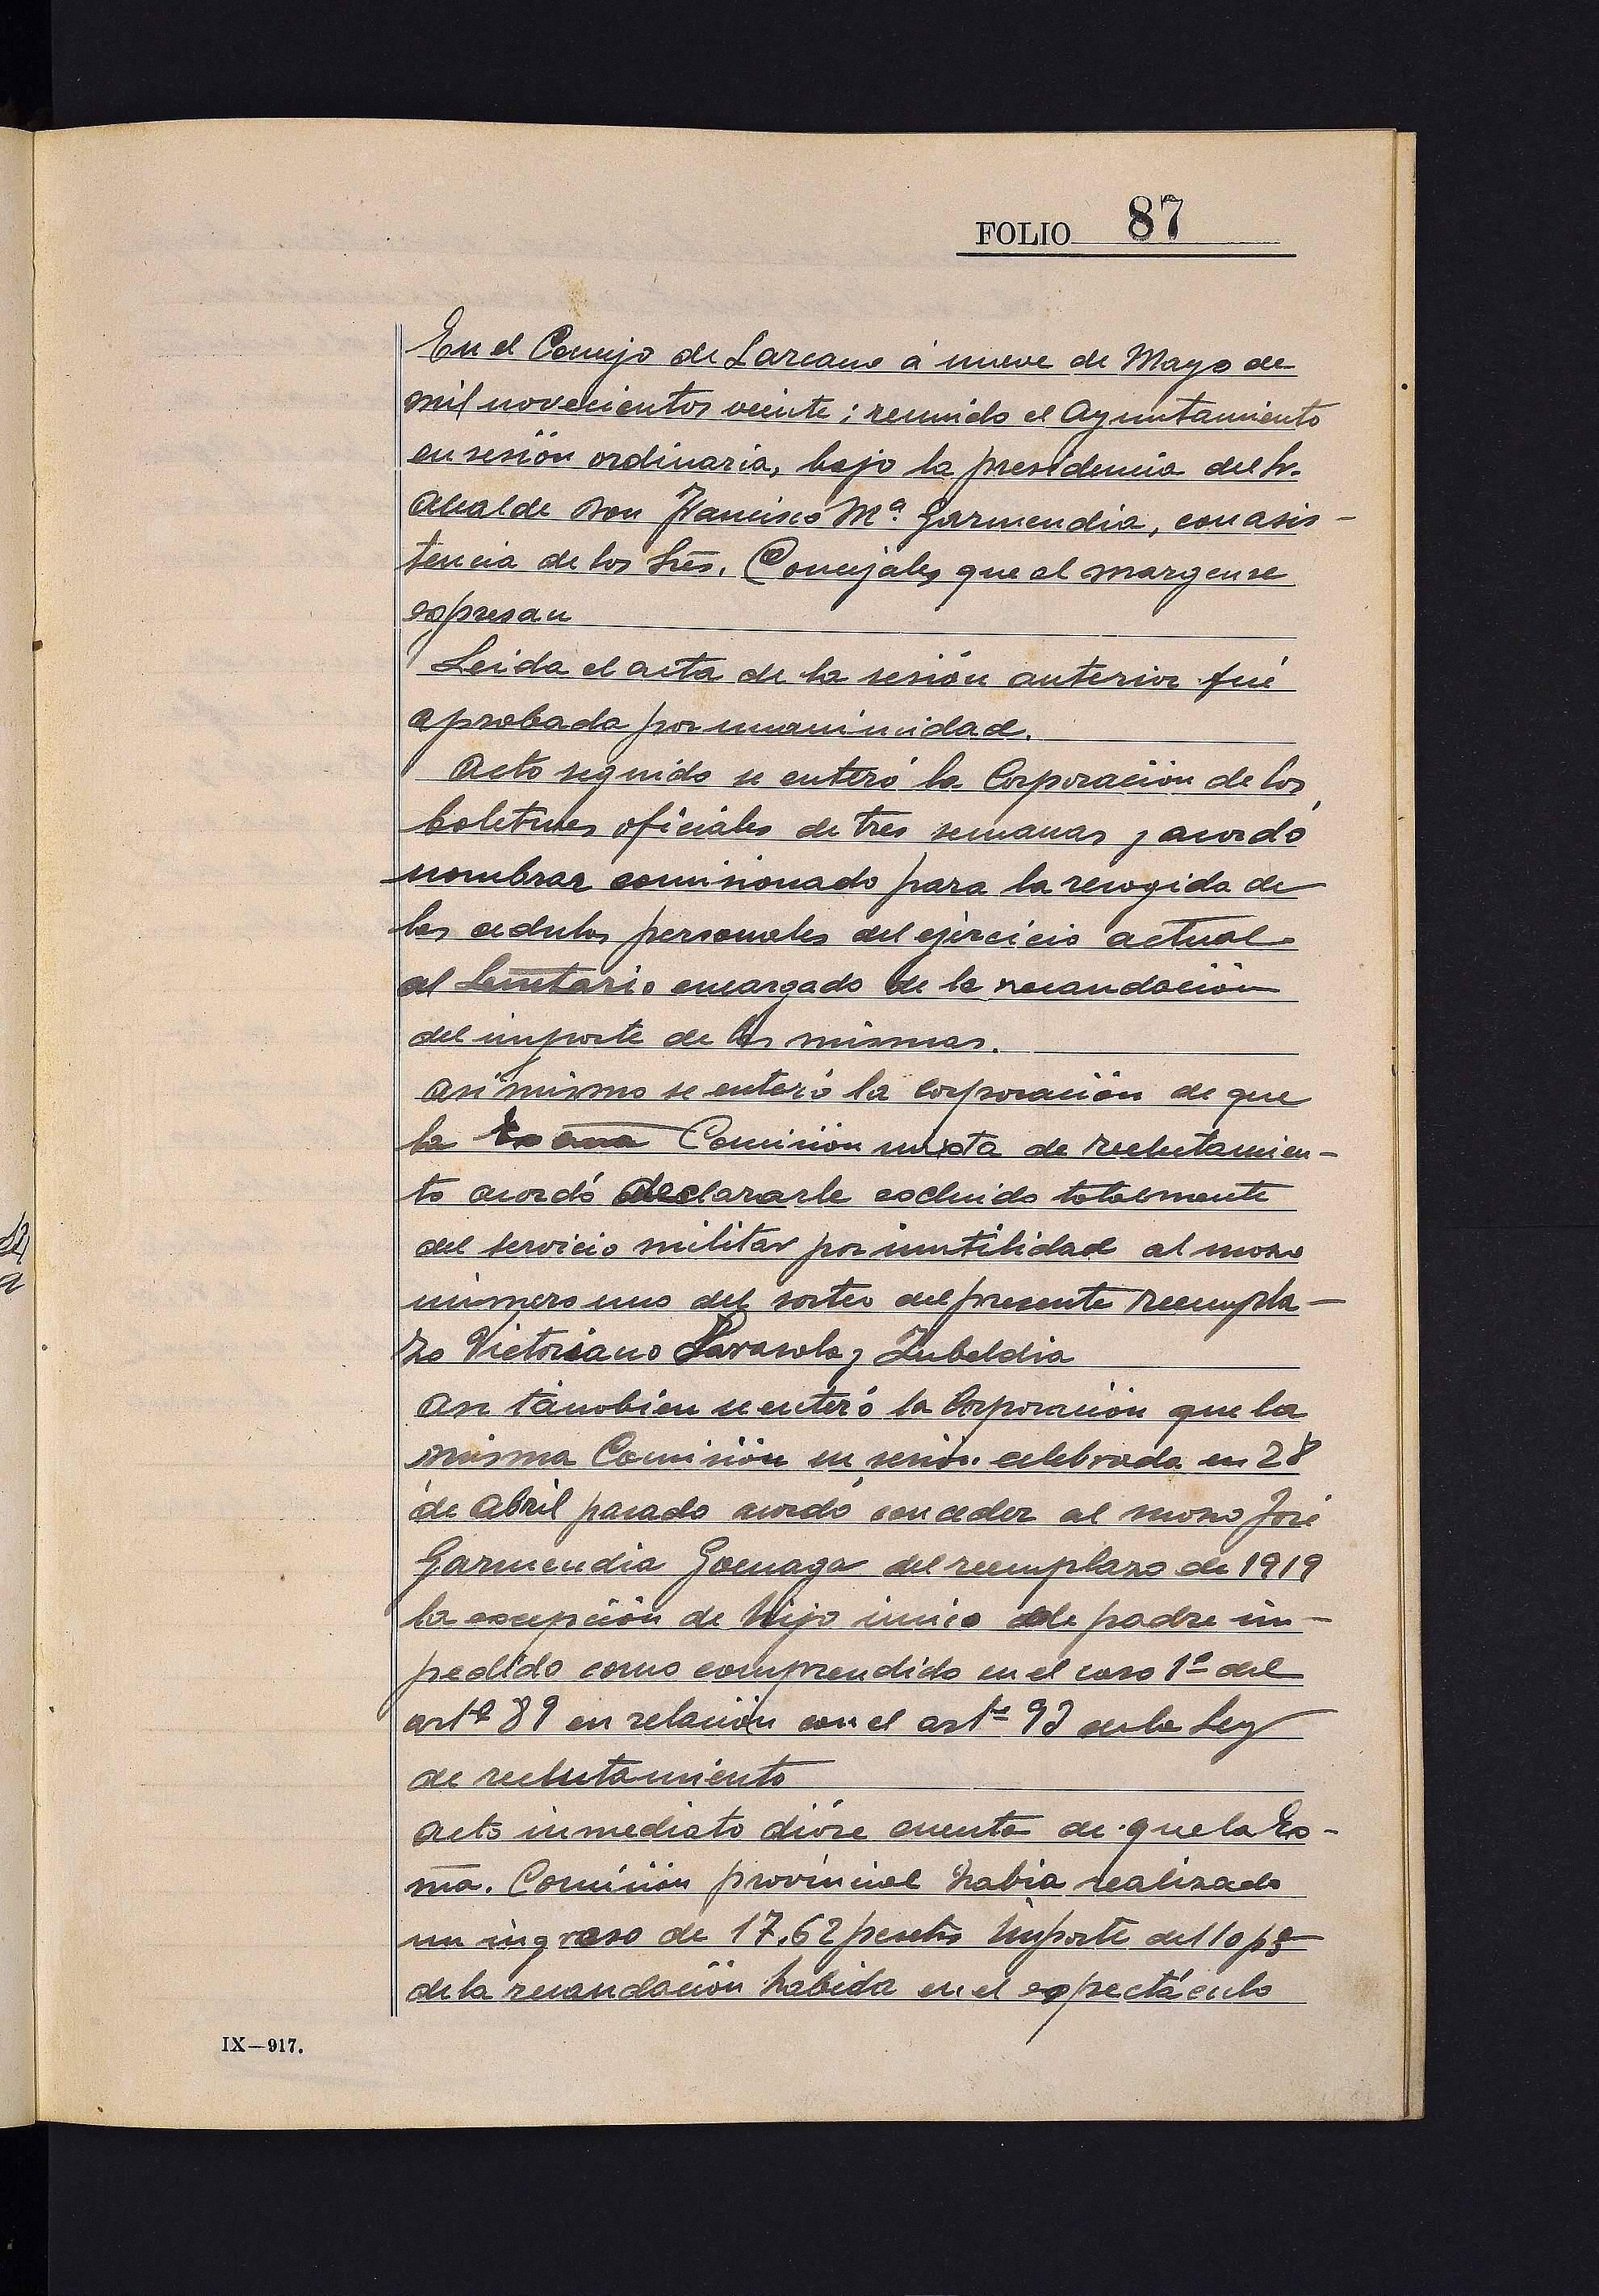 FOLIO 87
En el Concejo de Lazcano á nueve de Mayo de
mil novecientos veinte; reunido el Ayuntamiento
en sesión ordinaria, bajo la presidencia del Sr.
Alcalde Don Francisco Mª. Garmendia, con asis-
tencia de los Sres. Concejales que al margen se
expresan
Leida el acta de la sesión anterior fué
aprobada por unanimidad.
Acto seguido se enteró la Corporación de los
boletines oficiales de tres semanas y acordó
nombrar comisionado para la recogida de
las cedulas personales del ejercicio actual
al Secretario encargado de la recaudación
del importe de las mismas.
Asi mismo se enteró la corporación de que
la Comisión mixta de reclutamien-
to acordó declararle excluido totalmente
del servicio militar por inutilidad al mozo
número uno del sorteo del presente reempla-
zo Victoriano Sarasola y Zubeldia
Asi tambien se enteró la Corporación que la
misma Comisión en sesión celebrada en 28
de Abril pasado acordó conceder al mozo José
Garmendia Goenaga del reemplazo de 1919
la excepción de hijo unico de padre im-
pedido como comprendido en el caso 1º del
artº 89 en relación con el artº 93 de la Ley
de reclutamiento
Acto inmediato dióse cuenta de que la Ex-
ma. Comisión provincial habia realizado
un ingreso de 17,62 pesetas importe del 10 p%
de la recaudación habida en el espectáculo
IX—917.